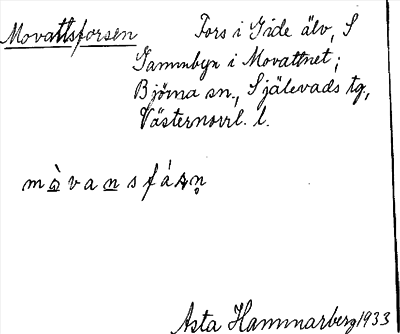 Movattsforsen Fors i Gide älv, S
Gammbyn i Movattnet;
Björna sn., Själevads tg,
Västernorrl. l.
mòvansfásn̥
Asta Hammarberg 1933